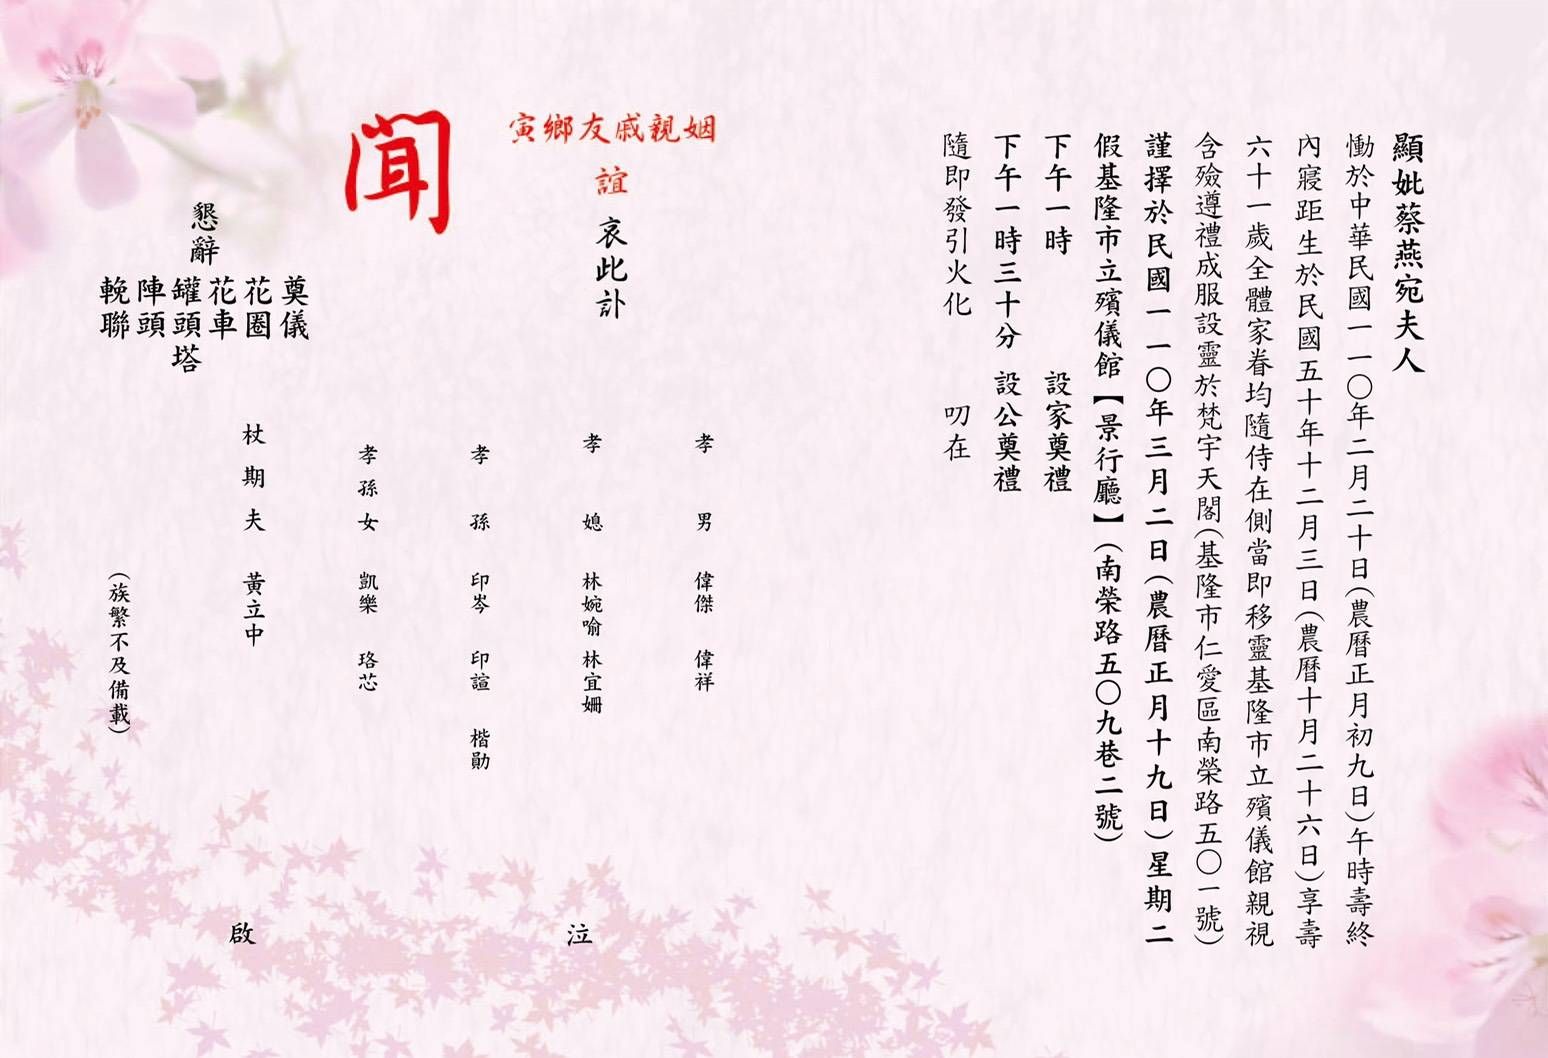 顯妣蔡燕宛夫人
慟於中華民國一一〇年二月二十日(農曆正月初九日)午時壽終
內寢距生於民國五十年十二月三日(農曆十月二十六日)享壽
六十一歲全體家眷均隨侍在側當即移靈基隆市立殯儀館親視
含殮遵禮成服設靈於梵宇天閣(基隆市仁愛區南榮路五〇一號)
謹擇於民國一一〇年三月二日(農曆正月十九日)星期二
假基隆市立殯儀館【景行廳】(南榮路五〇九巷二號)
下午一時 設家奠禮
下午一時三十分 設公奠禮
隨即發引火化 叨在
姻親戚友鄉寅
誼 哀此訃
聞
孝男 偉傑 偉祥
孝媳 林婉喻 林宜姍 泣
孝孫 印岑 印諠 楷勛
孝孫女 凱樂 珞芯
杖期夫 黃立中 啟
(族繁不及備載)
懇辭
奠儀
花圈
花車
罐頭塔
陣頭
輓聯